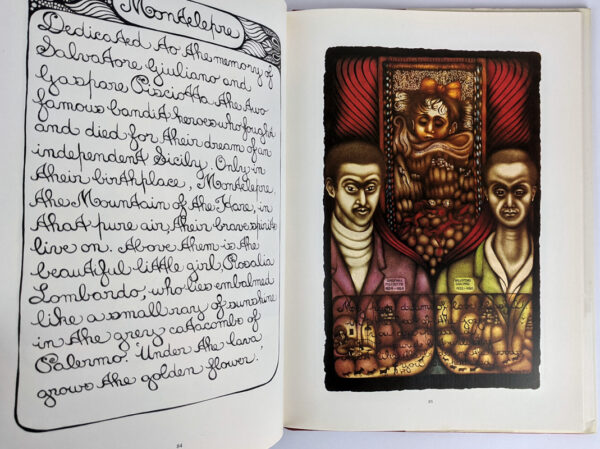 Montelepre
Dedicated to the memory of
Salvatore Giuliano and
Gaspare Pisciotta the two
famous bandit heroes who fought
and died for their dream of an
independent Sicily. Only in
their birthplace, Montelepre,
the Mountain of the Hare, in
that pure air, their brave spirits
live on. Above them is the
beautiful little girl, Rosalia
Lombardo, who lies embalmed
like a small ray of sunshine
in the grey catacombs of
Palermo. 'Under the lava
grows the golden flower.'
84
GASPARE
PISCIOTTA
SALVATORE
GIULIANO
85